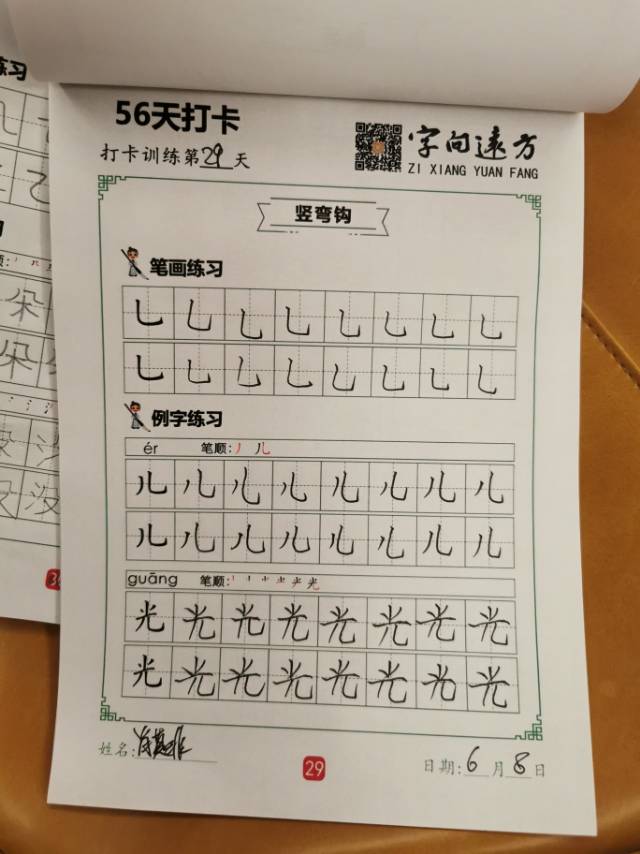 56天打卡
打卡训练第29天
字向远方
ZI XIANG YUAN FANG
竖弯钩
笔画练习
乚乚乚乚乚乚乚乚
乚乚乚乚乚乚乚乚
例字练习
ér 笔顺:丿儿
儿儿儿儿儿儿儿儿
儿儿儿儿儿儿儿儿
guāng 笔顺:
光光光光光光光光
光光光光光光光光
姓名:
29
日期:6月8日
练习
朵
朵
没
没